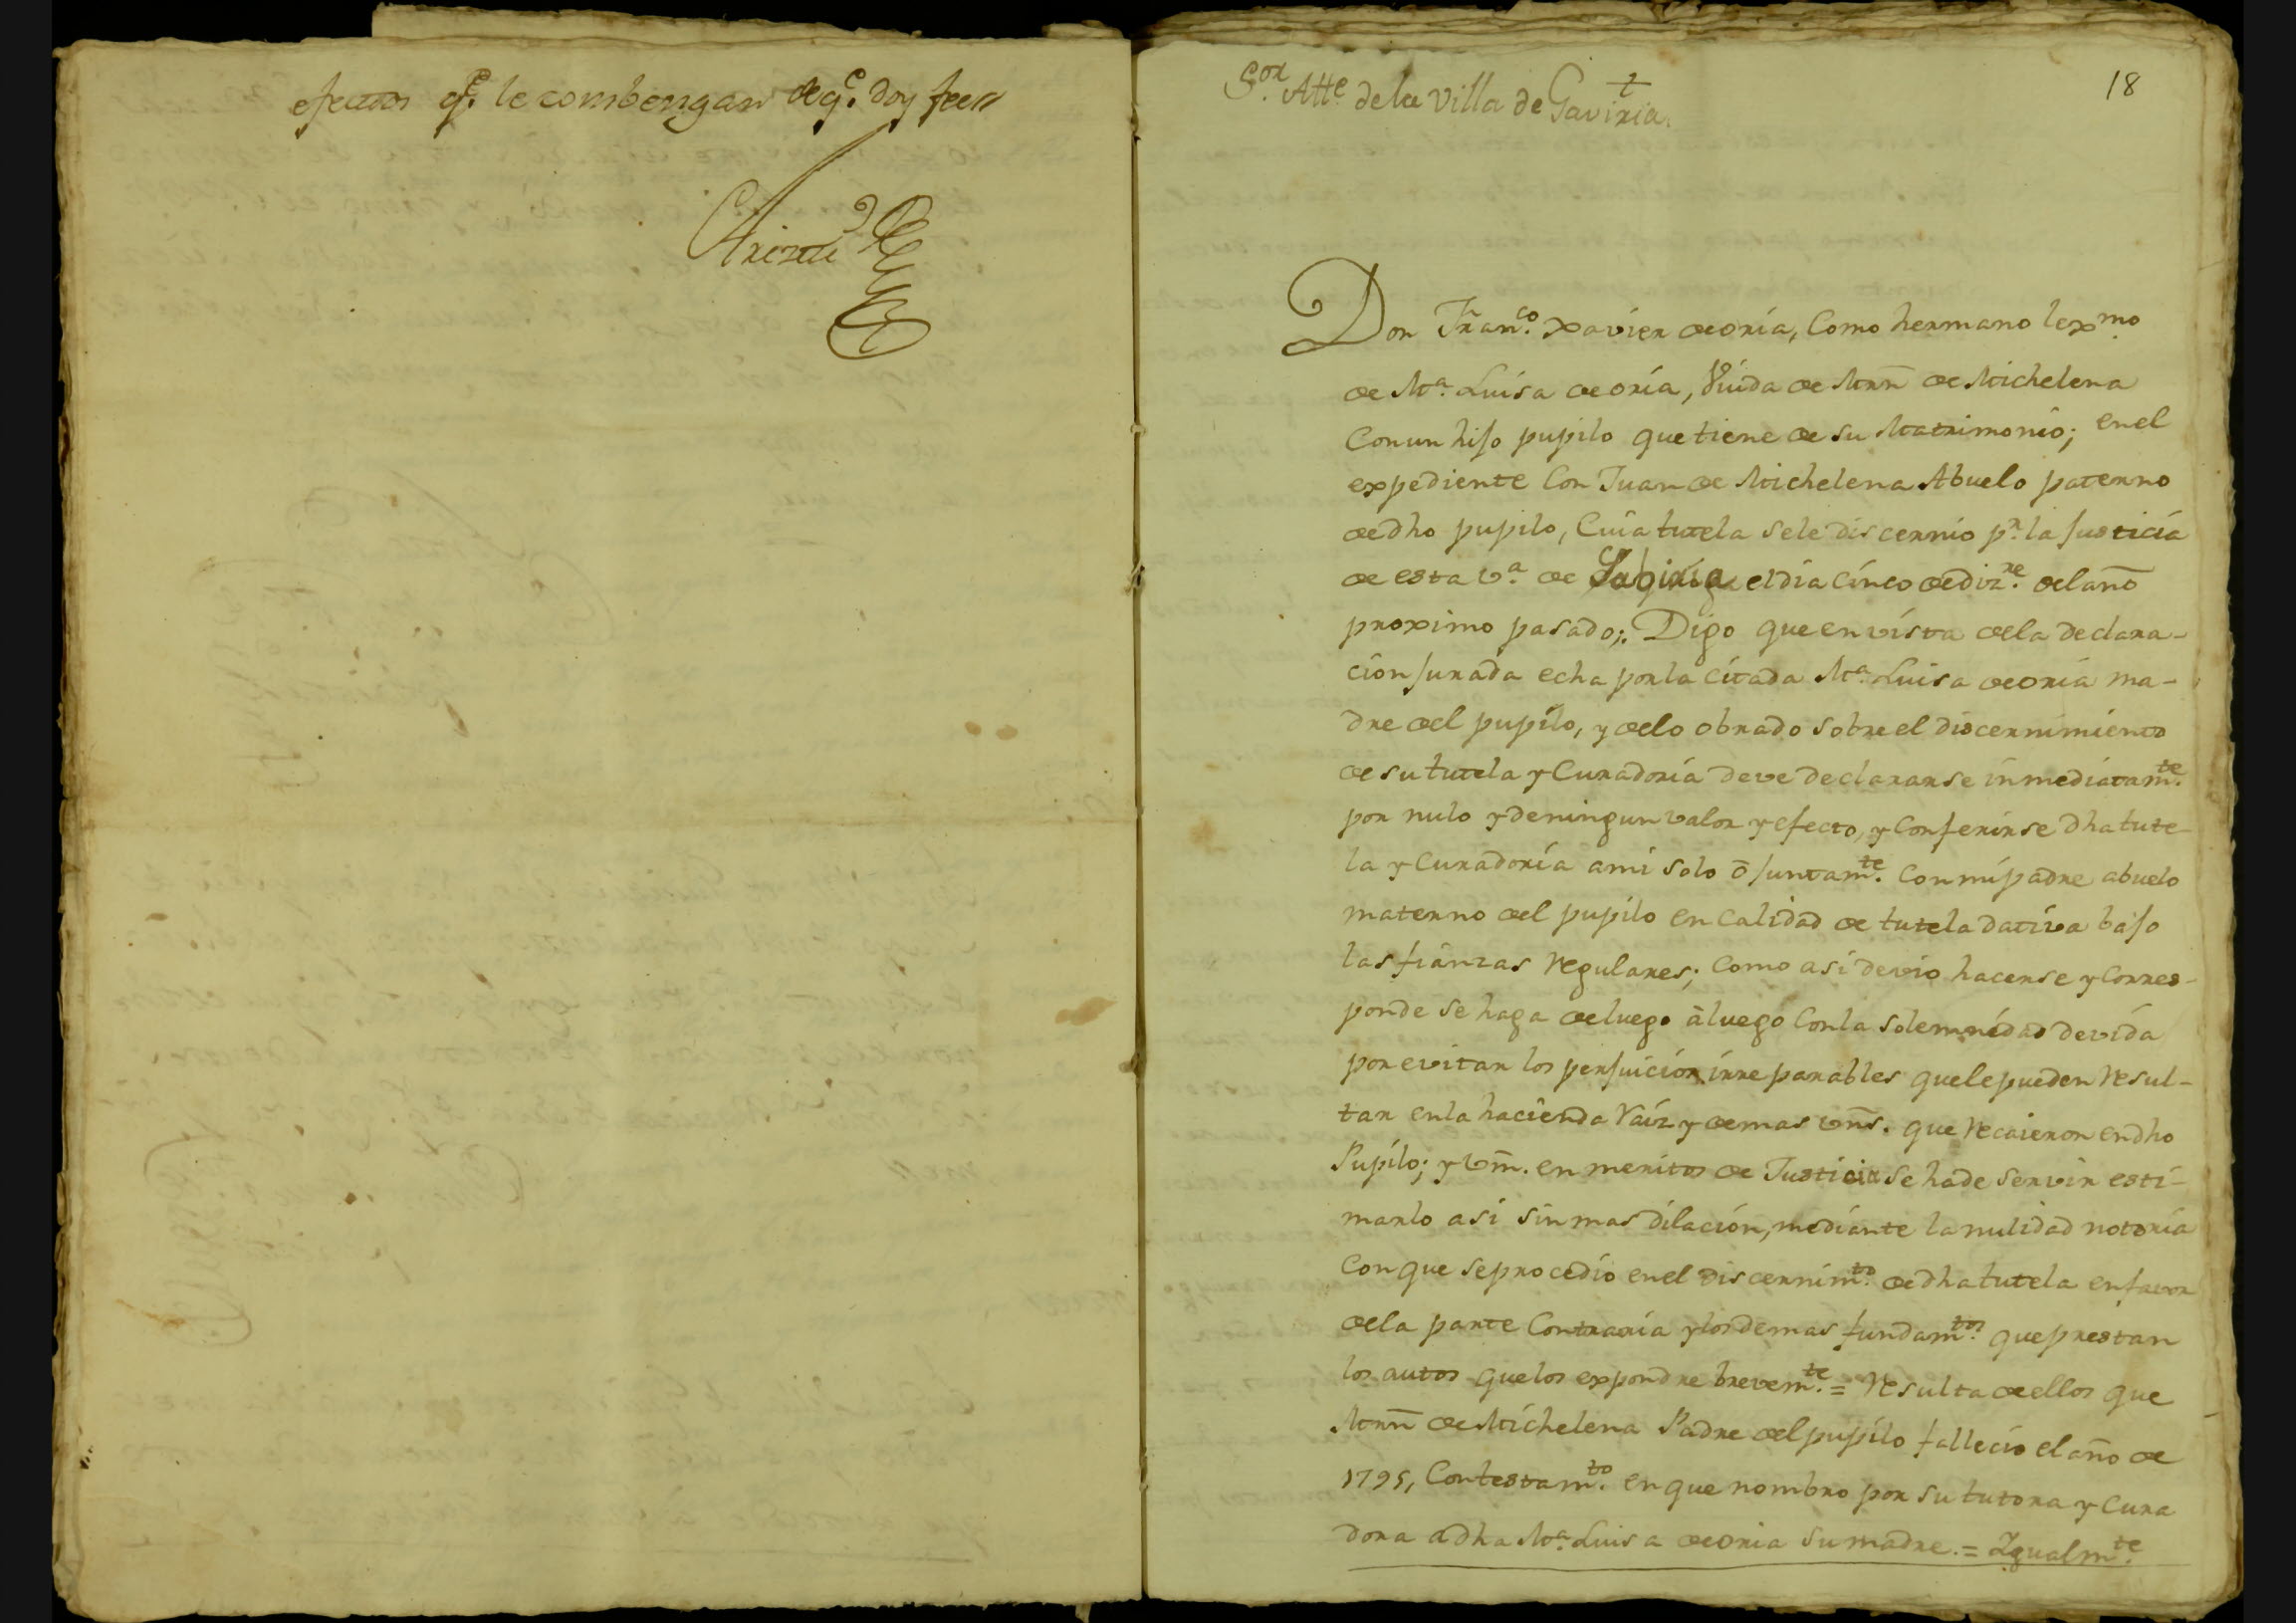 efectos q.e le combengan de q.e doy fee//
Arizti
18
S.or Att.e de la villa de Gaviria.
Don Fran.co Xavier de oria, Como hermano lex.mo
de M.a Luisa de oria, Viuda de Mrñ de Michelena
Con un hijo pupilo que tiene de su Matrimonio; en el
expediente Con Juan de Michelena Abuelo paterno
de dho pupilo, Cuia tutela se le discernio p.r la Justicia
de esta v.a de Gabiria el dia Cinco de diz.re del año
proximo pasado;. Digo que en vista de la declara-
cion jurada echa por la Citada M.a Luisa de oria ma-
dre del pupilo, y de lo obrado sobre el discernimiento
de su tutela y Curadoria deve declararse inmediatam.te
por nulo y de ningun valor y efecto, y Conferirse dha tute-
la y Curadoria a mi solo ō juntam.te Con mi padre abuelo
materno del pupilo en Calidad de tutela dativa bajo
las fianzas regulares; Como asi devio hacerse y Corres-
ponde se haga de luego à luego Con la solemnidad devida
por evitar los perjuicios irreparables que le pueden resul-
tar en la hacienda raiz y demas vñs. que recaieron en dho
Pupilo; y Vm̄. en meritos de Justicia se ha de servir esti-
marlo asi sin mas dilacion, mediante la nulidad notoria
Con que se procedio en el discernim.to de dha tutela en favor
de la parte Contraria y los demas fundam.tos que prestan
los autos que los expondre brevem.te = resulta de ellos que
Mrñ de Michelena Padre del pupilo fallecio el año de
1795, Con testam.to en que nombro por su tutora y Cura
dora a dha M.a Luisa de oria su madre. = Igualm.te